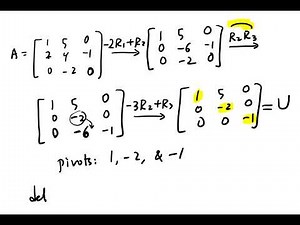 A = [1 5 0; 2 4 -1; 0 -2 0] -2R₁+R₂→ [1 5 0; 0 -6 -1; 0 -2 0] R₂R₃→
[1 5 0; 0 -2 0; 0 -6 -1] -3R₂+R₃→ [1 5 0; 0 -2 0; 0 0 -1] = U
pivots: 1, -2, & -1
det